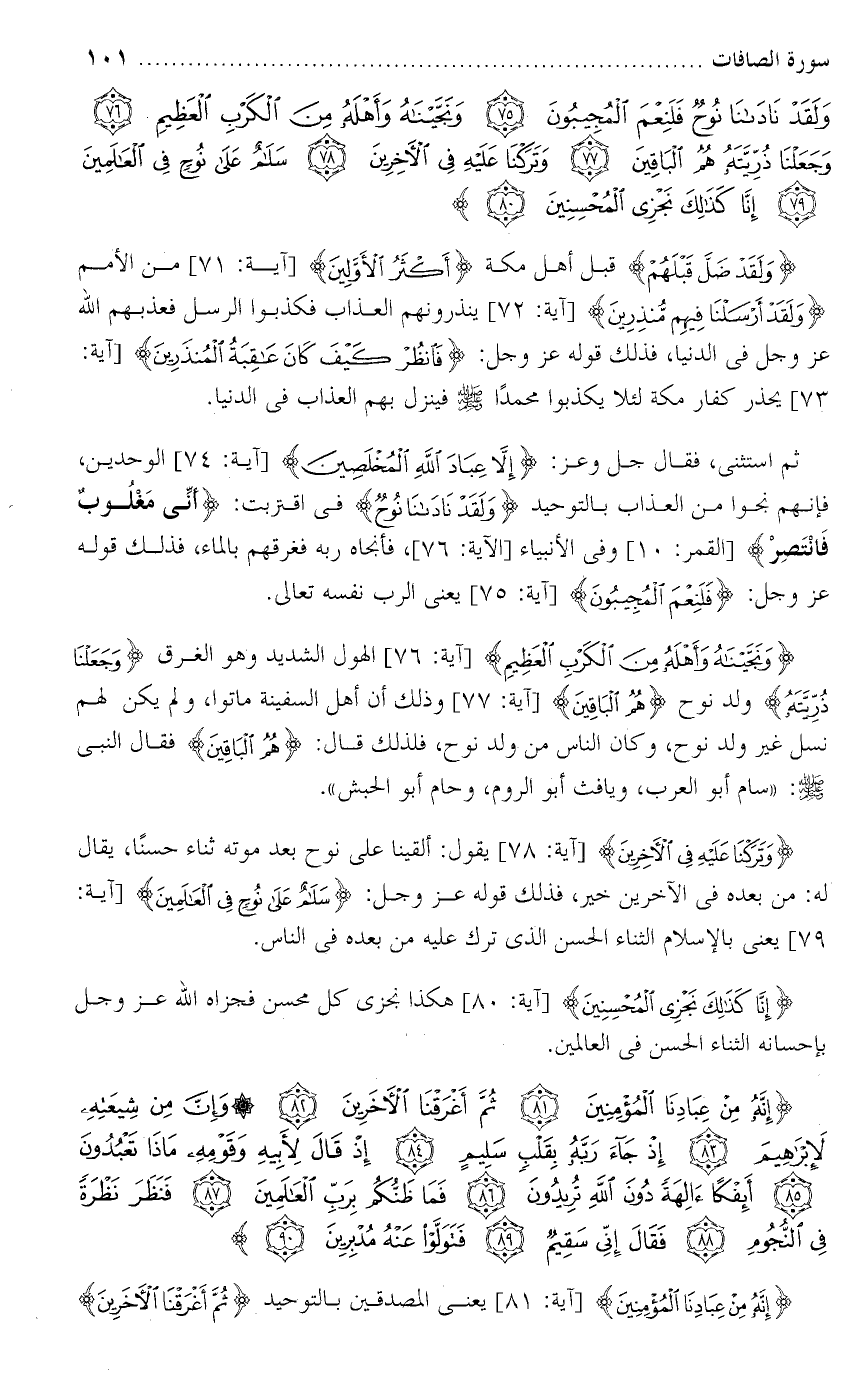 سورة الصافات ........................................................................ ١٠١
وَلَقَدْ نَادَىٰنَا نُوحٌ فَلَنِعْمَ ٱلْمُجِيبُونَ ٧٥ وَنَجَّيْنَٰهُ وَأَهْلَهُۥ مِنَ ٱلْكَرْبِ ٱلْعَظِيمِ ٧٦
وَجَعَلْنَا ذُرِّيَّتَهُۥ هُمُ ٱلْبَاقِينَ ٧٧ وَتَرَكْنَا عَلَيْهِ فِى ٱلْأَخِرِينَ ٧٨ سَلَٰمٌ عَلَىٰ نُوحٍ فِى ٱلْعَٰلَمِينَ
٧٩ إِنَّا كَذَٰلِكَ نَجْزِى ٱلْمُحْسِنِينَ ٨٠ ﴾
﴿وَلَقَدْ ضَلَّ قَبْلَهُمْ﴾ قبل أهل مكة ﴿أَكْثَرُ ٱلْأَوَّلِينَ﴾ [آية: ٧١] من الأمم
﴿وَلَقَدْ أَرْسَلْنَا فِيهِم مُّنذِرِينَ﴾ [آية: ٧٢] ينذرونهم العذاب فكذبوا الرسل فعذبهم الله
عز وجل فى الدنيا، فذلك قوله عز وجل: ﴿فَٱنظُرْ كَيْفَ كَانَ عَٰقِبَةُ ٱلْمُنذَرِينَ﴾ [آية:
٧٣] يحذر كفار مكة لئلا يكذبوا محمدًا ﷺ فينزل بهم العذاب فى الدنيا.
ثم استثنى، فقال جل وعز: ﴿إِلَّا عِبَادَ ٱللَّهِ ٱلْمُخْلَصِينَ﴾ [آية: ٧٤] الوحدين،
فإنهم نجوا من العذاب بالتوحيد ﴿وَلَقَدْ نَادَىٰنَا نُوحٌ﴾ فى اقتربت: ﴿أَنِّى مَغْلُوبٌ
فَانْتَصِرْ﴾ [القمر: ١٠] وفى الأنبياء [الآية: ٧٦]، فأنجاه ربه فغرقهم بالماء، فذلك قوله
عز وجل: ﴿فَلَنِعْمَ ٱلْمُجِيبُونَ﴾ [آية: ٧٥] يعنى الرب نفسه تعالى.
﴿وَنَجَّيْنَٰهُ وَأَهْلَهُۥ مِنَ ٱلْكَرْبِ ٱلْعَظِيمِ﴾ [آية: ٧٦] الهول الشديد وهو الغرق ﴿وَجَعَلْنَا
ذُرِّيَّتَهُۥ﴾ ولد نوح ﴿هُمُ ٱلْبَاقِينَ﴾ [آية: ٧٧] وذلك أن أهل السفينة ماتوا، ولم يكن لهم
نسل غير ولد نوح، وكان الناس من ولد نوح، فلذلك قال: ﴿هُمُ ٱلْبَاقِينَ﴾ فقال النبى
ﷺ: «سام أبو العرب، ويافث أبو الروم، وحام أبو الحبش».
﴿وَتَرَكْنَا عَلَيْهِ فِى ٱلْأَخِرِينَ﴾ [آية: ٧٨] يقول: ألقينا على نوح بعد موته ثناء حسنًا، يقال
له: من بعده فى الآخرين خير، فذلك قوله عز وجل: ﴿سَلَٰمٌ عَلَىٰ نُوحٍ فِى ٱلْعَٰلَمِينَ﴾ [آية:
٧٩] يعنى بالإسلام الثناء الحسن الذى ترك عليه من بعده فى الناس.
﴿إِنَّا كَذَٰلِكَ نَجْزِى ٱلْمُحْسِنِينَ﴾ [آية: ٨٠] هكذا نجزى كل محسن فجزاه الله عز وجل
بإحسانه الثناء الحسن فى العالمين.
﴿إِنَّهُۥ مِنْ عِبَادِنَا ٱلْمُؤْمِنِينَ ٨١ ثُمَّ أَغْرَقْنَا ٱلْأَخَرِينَ ٨٢ ۞وَإِنَّ مِن شِيعَتِهِۦ
لَإِبْرَٰهِيمَ ٨٣ إِذْ جَآءَ رَبَّهُۥ بِقَلْبٍ سَلِيمٍ ٨٤ إِذْ قَالَ لِأَبِيهِ وَقَوْمِهِۦ مَاذَا تَعْبُدُونَ
٨٥ أَئِفْكًا ءَالِهَةً دُونَ ٱللَّهِ تُرِيدُونَ ٨٦ فَمَا ظَنُّكُم بِرَبِّ ٱلْعَٰلَمِينَ ٨٧ فَنَظَرَ نَظْرَةً
فِى ٱلنُّجُومِ ٨٨ فَقَالَ إِنِّى سَقِيمٌ ٨٩ فَتَوَلَّوْا۟ عَنْهُ مُدْبِرِينَ ٩٠ ﴾
﴿إِنَّهُۥ مِنْ عِبَادِنَا ٱلْمُؤْمِنِينَ﴾ [آية: ٨١] يعنى المصدقين بالتوحيد ﴿ثُمَّ أَغْرَقْنَا ٱلْأَخَرِينَ﴾